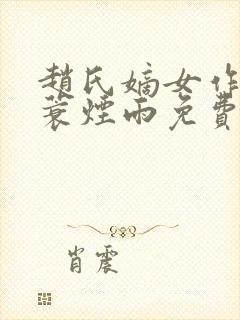 趙氏嫡女作
蓑煙雨免費
肖震